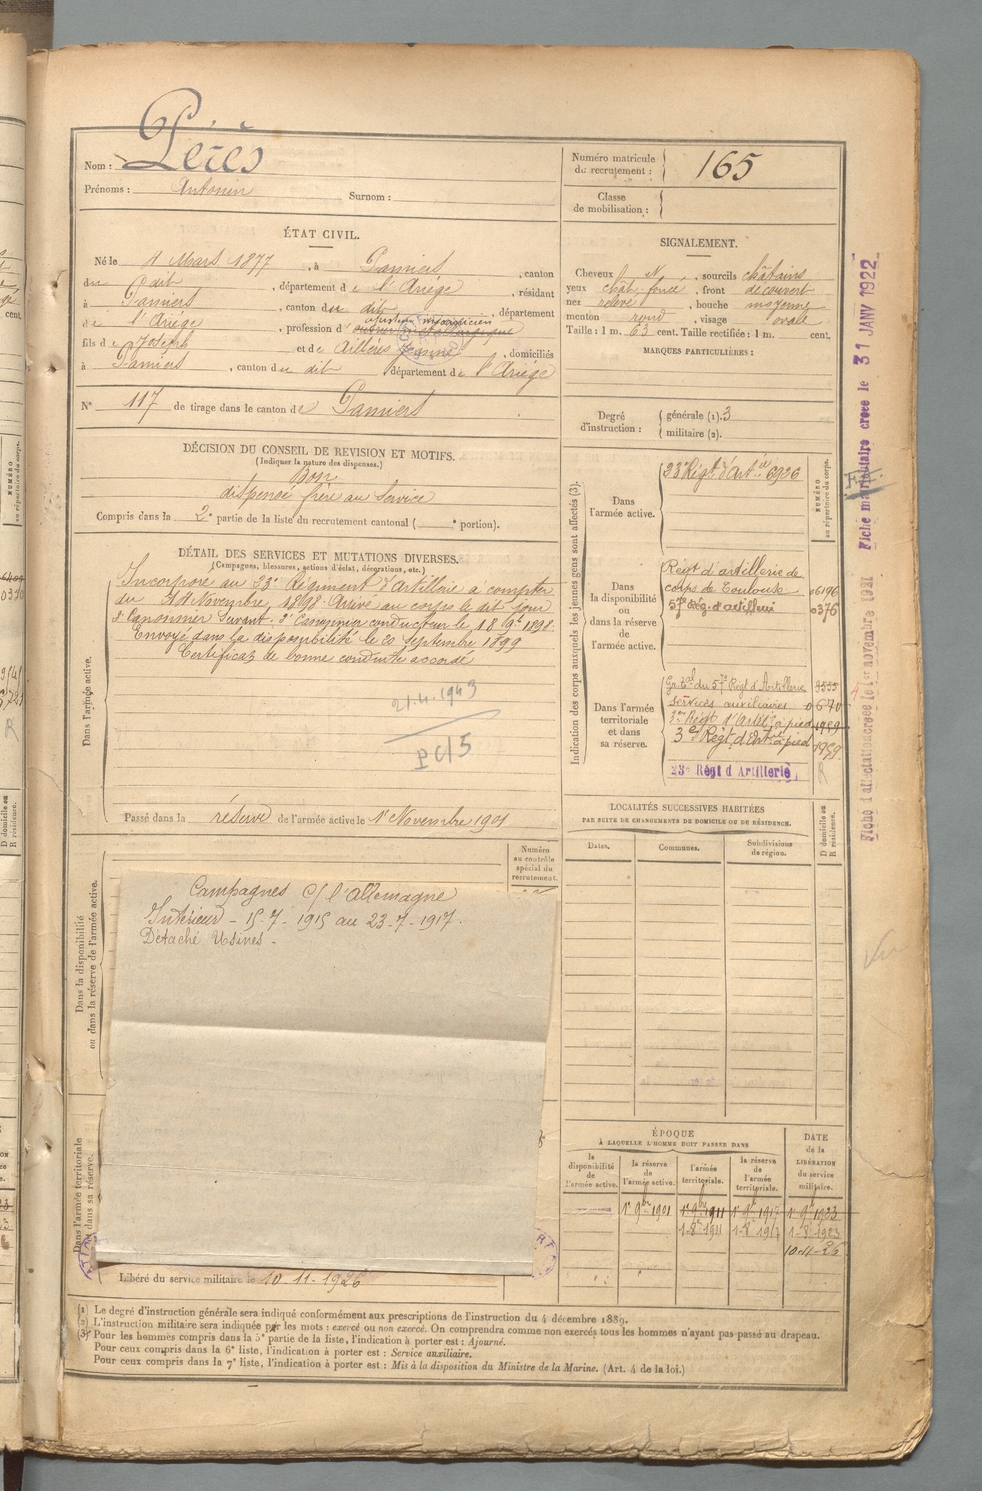 Nom : Pérès
Prénoms : Antonin Surnom :
Numéro matricule
du recrutement : 165
Classe
de mobilisation :
ÉTAT CIVIL.
Né le 4 Mars 1877, à Pamiers, canton
du dit, département de l'Ariège, résidant
à Pamiers, canton du dit, département
ajusteur mécanicien
de l'Ariège, profession d'ouvrier métallurgique
fils de Joseph et de Aillères Jeanne, domiciliés
à Pamiers, canton du dit département de l'Ariège
N° 117 de tirage dans le canton de Pamiers
SIGNALEMENT.
Cheveux N, sourcils châtains
yeux chât. foncé, front découvert
nez relevé, bouche moyenne
menton rond, visage ovale
Taille : 1 m. 63 cent. Taille rectifiée : 1 m. cent.
MARQUES PARTICULIÈRES :
Degré
d'instruction :
générale (1). 3
militaire (2).
DÉCISION DU CONSEIL DE REVISION ET MOTIFS.
(Indiquer la nature des dispenses.)
Bon
dispensé frère au Service
Compris dans la 2e partie de la liste du recrutement cantonal ( e portion).
DÉTAIL DES SERVICES ET MUTATIONS DIVERSES.
(Campagnes, blessures, actions d'éclat, décorations, etc.)
Dans l'armée active.
Incorporé au 23e Régiment d'Artillerie à compter
du 14 Novembre 1898. Arrivé au corps le dit jour
2e Canonnier Servant. 2e Canonnier conducteur le 18 9bre 1898.
Envoyé dans la disponibilité le 20 Septembre 1899
Certificat de bonne conduite accordé
21.4.1943
PC/5
Passé dans la réserve de l'armée active le 1er Novembre 1901
Indication des corps auxquels les jeunes gens sont affectés (3).
NUMÉRO
au répertoire du corps.
Dans
l'armée active.
23e Régt d'Artie 6926
Dans
la disponibilité
ou
dans la réserve
de
l'armée active.
Régt d'artillerie de
corps de Toulouse 06196
57e Rég. d'artillerie 0376
Dans l'armée
territoriale
et dans
sa réserve.
Gr. Tal du 57e Régt d'Artillerie 9555
services auxiliaires 0670
3e Régt d'Artie à pied 1959
23e Régt d'Artillerie
R
LOCALITÉS SUCCESSIVES HABITÉES
PAR SUITE DE CHANGEMENTS DE DOMICILE OU DE RÉSIDENCE.
D domicile ou
R résidence.
Dates. Communes. Subdivisions
de région.
Numéro
au contrôle
spécial du
recrutement.
Dans la disponibilité
ou dans la réserve de l'armée active.
Campagnes c/ l'allemagne
Intérieur - 15-7-1915 au 23-7-1917.
Détaché Usines -
Dans l'armée territoriale
et dans sa réserve.
Libéré du service militaire le 10-11-1926
ÉPOQUE
À LAQUELLE L'HOMME DOIT PASSER DANS
DATE
de la
LIBÉRATION
du service
militaire.
la
disponibilité
de
l'armée active.
la réserve
de
l'armée active.
l'armée
territoriale.
la réserve
de
l'armée
territoriale.
1er 9bre 1901 1er 9bre 1911 1er 9bre 1917 1er 9bre 1923
1-8bre 1911 1-8bre 1917 1-8bre 1923
10-11-26
(1) Le degré d'instruction générale sera indiqué conformément aux prescriptions de l'instruction du 4 décembre 1889.
(2) L'instruction militaire sera indiquée par les mots : exercé ou non exercé. On comprendra comme non exercés tous les hommes n'ayant pas passé au drapeau.
(3) Pour les hommes compris dans la 5e partie de la liste, l'indication à porter est : Ajourné.
Pour ceux compris dans la 6e liste, l'indication à porter est : Service auxiliaire.
Pour ceux compris dans la 7e liste, l'indication à porter est : Mis à la disposition du Ministre de la Marine. (Art. 4 de la loi.)
Fiche matriculaire créée le 31 JANV 1922
Fiche d'affectation créée le 1er novembre 1921